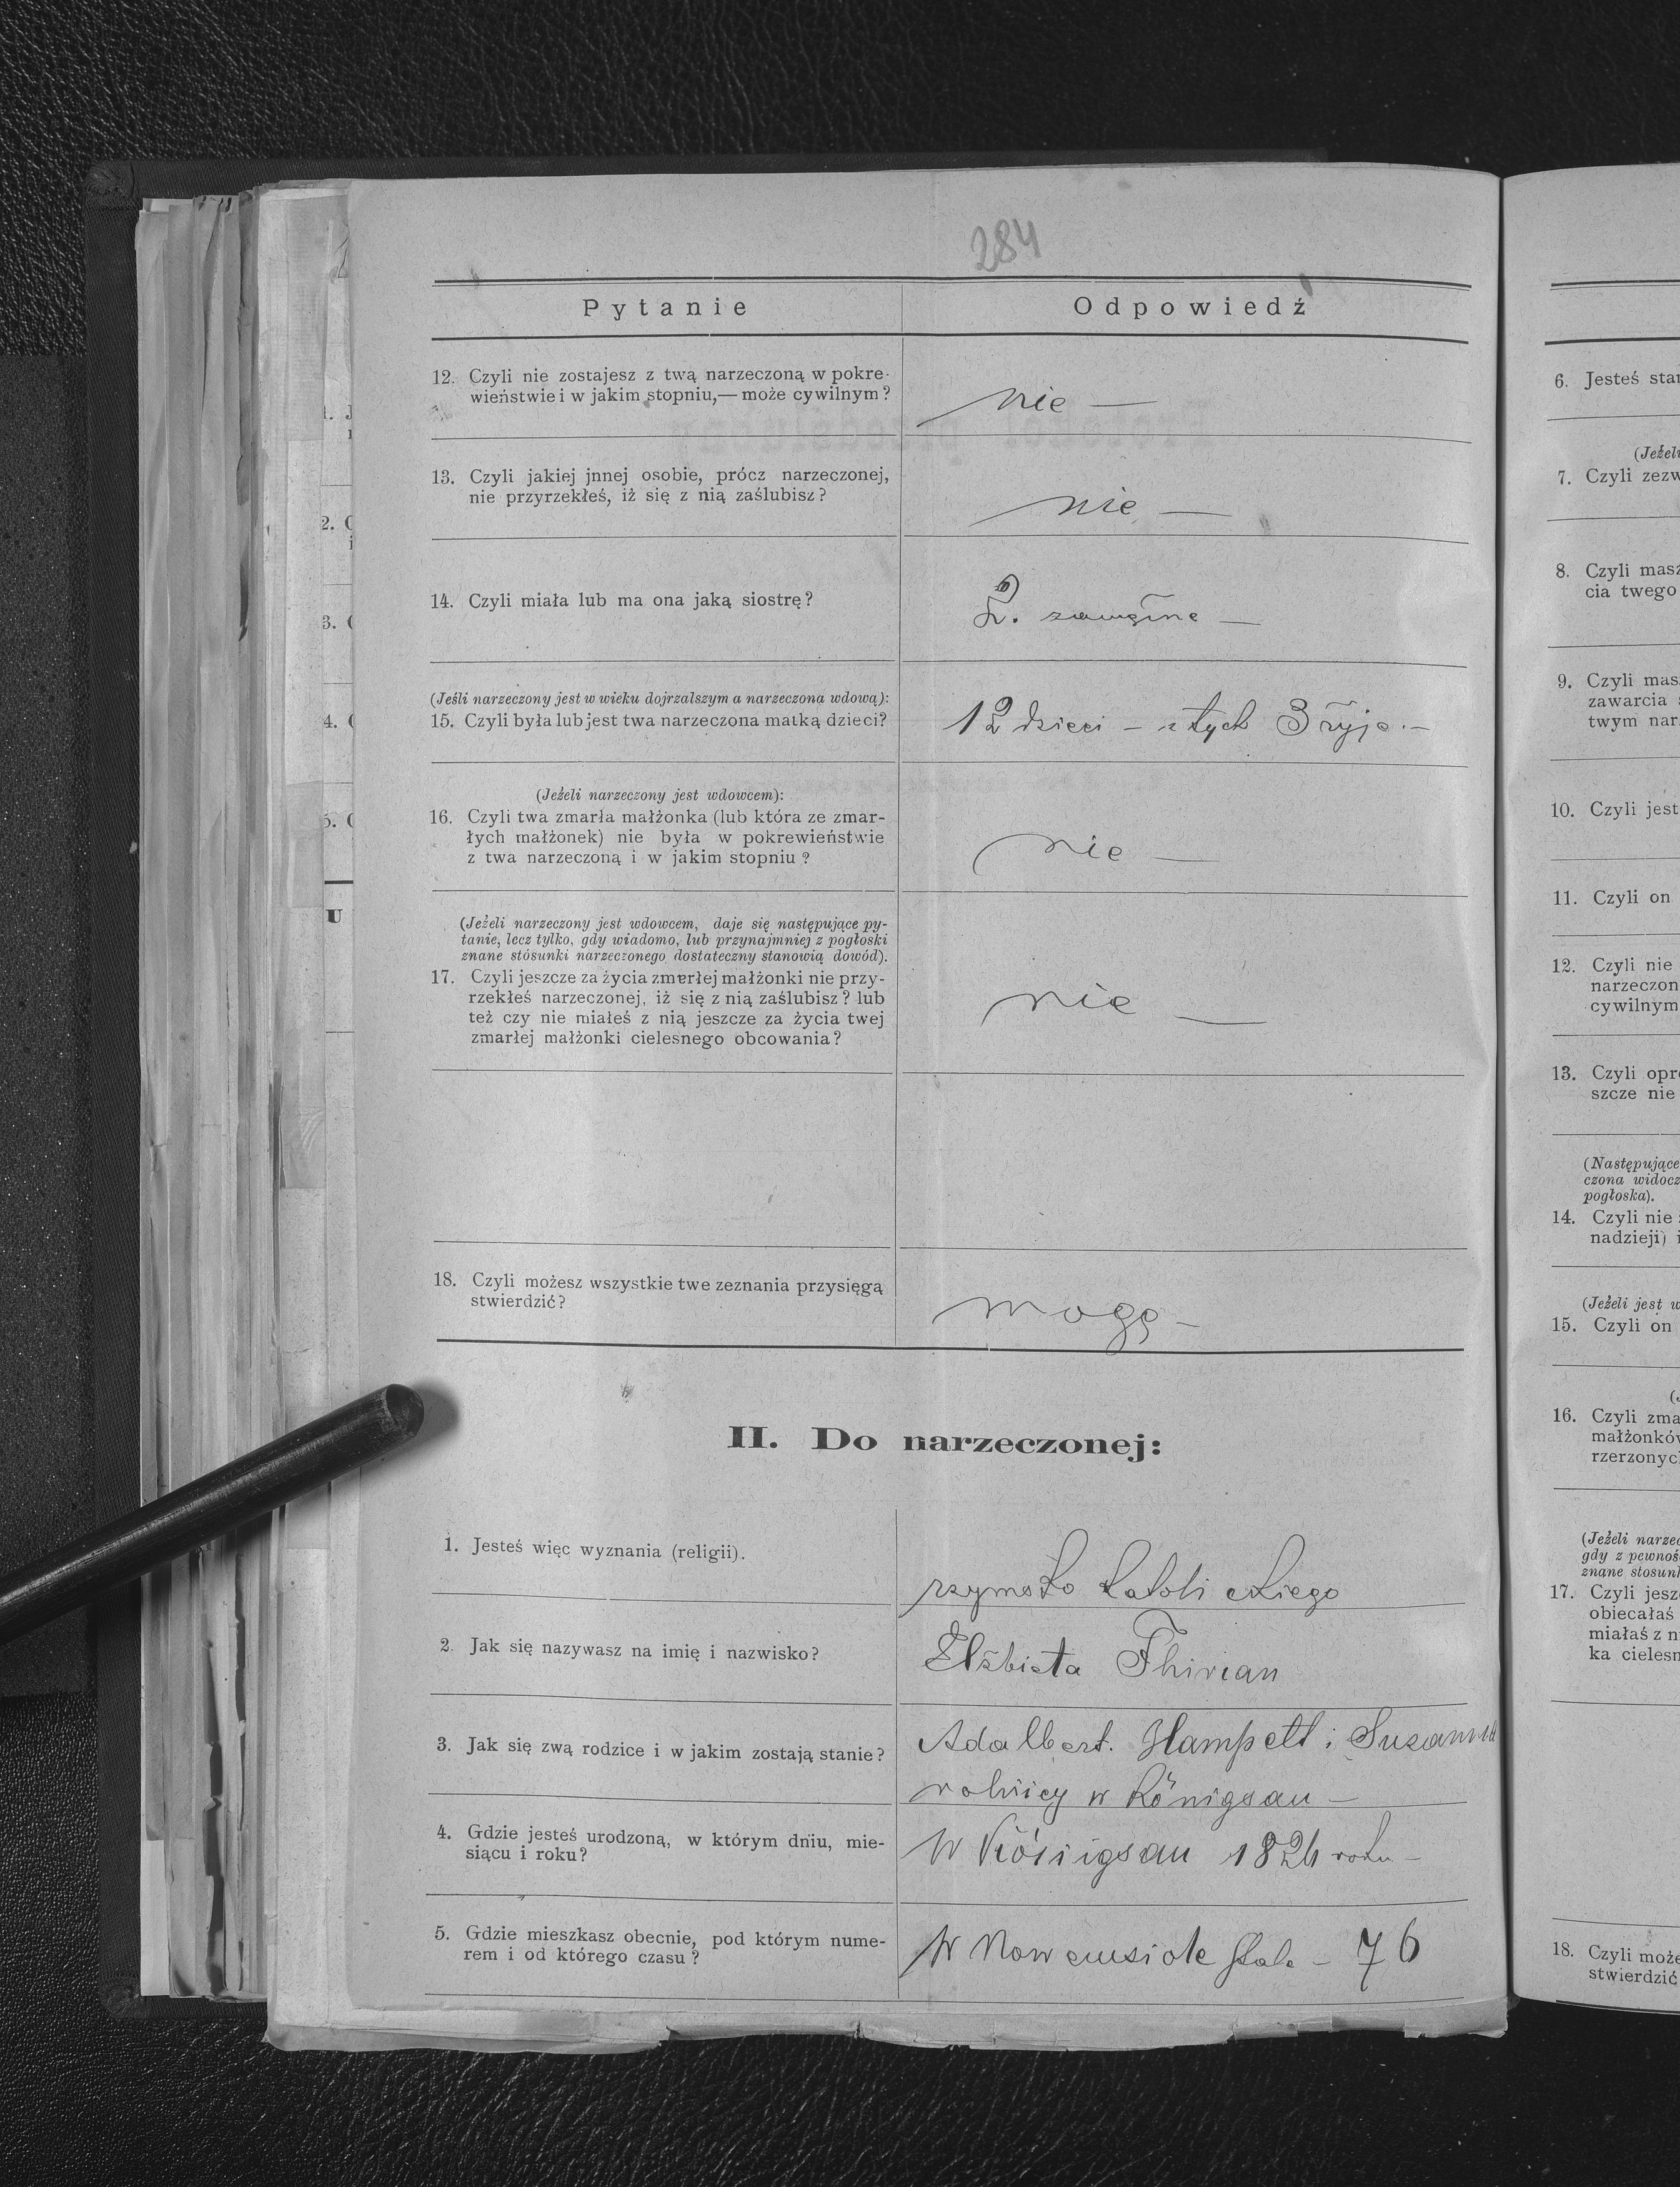 284
Pytanie
Odpowiedź
12. Czyli nie zostajesz z twą narzeczoną w pokre-
wieństwie i w jakim stopniu,— może cywilnym?
nie —
13. Czyli jakiej jnnej osobie, prócz narzeczonej,
nie przyrzekłeś, iż się z nią zaślubisz?
nie —
14. Czyli miała lub ma ona jaką siostrę?
2. zamężne —
(Jeśli narzeczony jest w wieku dojrzalszym a narzeczona wdową):
15. Czyli była lub jest twa narzeczona matką dzieci?
12 dzieci – z tych 3 żyje. –
(Jeżeli narzeczony jest wdowcem):
16. Czyli twa zmarła małżonka (lub która ze zmar-
łych małżonek) nie była w pokrewieństwie
z twa narzeczoną i w jakim stopniu?
nie —
(Jeżeli narzeczony jest wdowcem, daje się następujące py-
tanie, lecz tylko, gdy wiadomo, lub przynajmniej z pogłoski
znane stósunki narzeczonego dostateczny stanowią dowód).
17. Czyli jeszcze za życia zmarłej małżonki nie przy-
rzekłeś narzeczonej, iż się z nią zaślubisz? lub
też czy nie miałeś z nią jeszcze za życia twej
zmarłej małżonki cielesnego obcowania?
nie —
18. Czyli możesz wszystkie twe zeznania przysięgą
stwierdzić?
mogę –
II. Do narzeczonej:
1. Jesteś więc wyznania (religii).
rzymsko katolickiego
2. Jak się nazywasz na imię i nazwisko?
Elżbieta Thirian
3. Jak się zwą rodzice i w jakim zostają stanie?
Adalbert. Hampelt i Suzanna
rolnicy w Königsau –
4. Gdzie jesteś urodzoną, w którym dniu, mie-
siącu i roku?
W Königsau 1826 roku –
5. Gdzie mieszkasz obecnie, pod którym nume-
rem i od którego czasu?
W Nowemsiole – 76
6. Jesteś
7. Czyli
8. Czyli masz
cia twego
9. Czyli
zawarcia
twym
10. Czyli jest
11. Czyli on
12. Czyli nie
cywilnym
13. Czyli
szcze nie
(Następujące
pogłoska).
14. Czyli nie
nadzieji)
(Jeżeli jest
15. Czyli on
16. Czyli
(Jeżeli
17. Czyli
obiecałaś
miałaś z
18. Czyli
stwierdzić